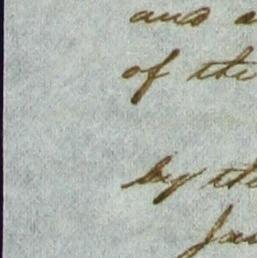 and a
of the
by the
Jan